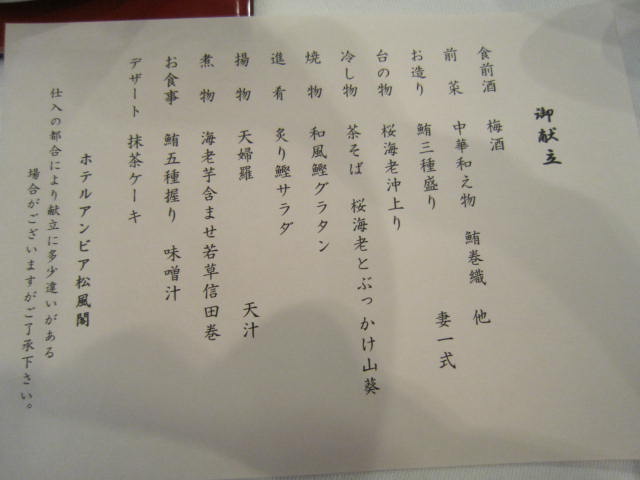 御献立
食前酒 梅酒
前菜 中華和え物 鮪巻繊 他
お造り 鮪三種盛り 妻一式
台の物 桜海老沖上り
冷し物 茶そば 桜海老とぶっかけ山葵
焼物 和風鰹グラタン
進肴 炙り鰹サラダ
揚物 天婦羅 天汁
煮物 海老芋含ませ若草信田巻
お食事 鮪五種握り 味噌汁
デザート 抹茶ケーキ
ホテルアンビア松風閣
仕入の都合により献立に多少違いがある
場合がございますがご了承下さい。